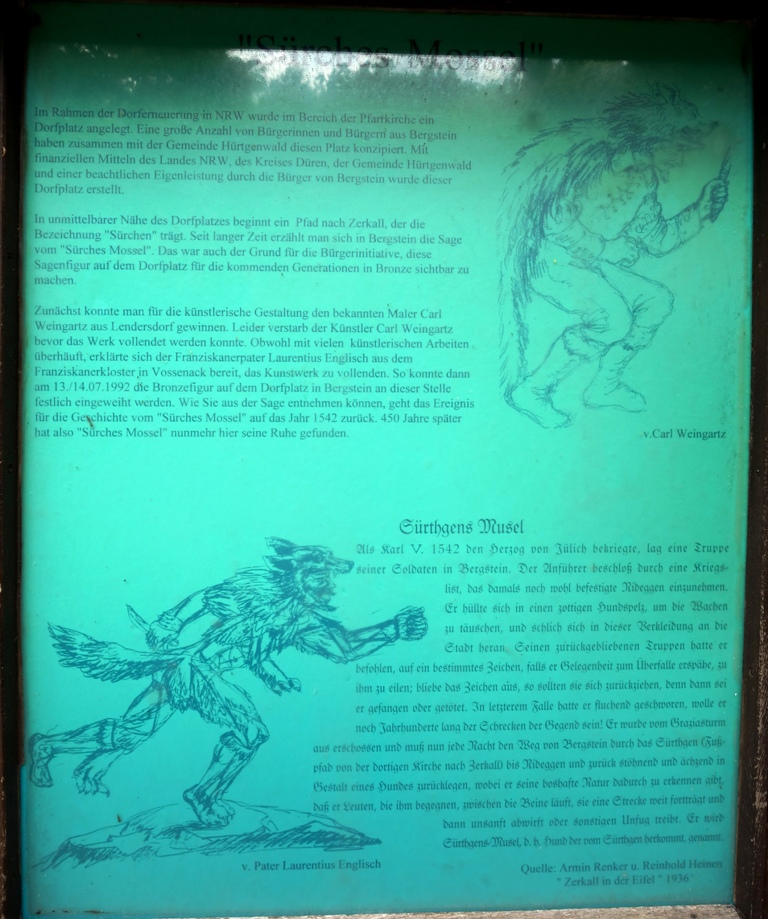 "Sürches Mossel"
Im Rahmen der Dorferneuerung in NRW wurde im Bereich der Pfarrkirche ein
Dorfplatz angelegt. Eine große Anzahl von Bürgerinnen und Bürgern aus Bergstein
haben zusammen mit der Gemeinde Hürtgenwald diesen Platz konzipiert. Mit
finanziellen Mitteln des Landes NRW, des Kreises Düren, der Gemeinde Hürtgenwald
und einer beachtlichen Eigenleistung durch die Bürger von Bergstein wurde dieser
Dorfplatz erstellt.
In unmittelbarer Nähe des Dorfplatzes beginnt ein Pfad nach Zerkall, der die
Bezeichnung "Sürchen" trägt. Seit langer Zeit erzählt man sich in Bergstein die Sage
vom "Sürches Mossel". Das war auch der Grund für die Bürgerinitiative, diese
Sagenfigur auf dem Dorfplatz für die kommenden Generationen in Bronze sichtbar zu
machen.
Zunächst konnte man für die künstlerische Gestaltung den bekannten Maler Carl
Weingartz aus Lendersdorf gewinnen. Leider verstarb der Künstler Carl Weingartz
bevor das Werk vollendet werden konnte. Obwohl mit vielen künstlerischen Arbeiten
überhäuft, erklärte sich der Franziskanerpater Laurentius Englisch aus dem
Franziskanerkloster in Vossenack bereit, das Kunstwerk zu vollenden. So konnte dann
am 13./14.07.1992 die Bronzefigur auf dem Dorfplatz in Bergstein an dieser Stelle
festlich eingeweiht werden. Wie Sie aus der Sage entnehmen können, geht das Ereignis
für die Geschichte vom "Sürches Mossel" auf das Jahr 1542 zurück. 450 Jahre später
hat also "Sürches Mossel" nunmehr hier seine Ruhe gefunden.
v.Carl Weingartz
Sürthgens Musel
Als Karl V. 1542 den Herzog von Jülich bekriegte, lag eine Truppe
seiner Soldaten in Bergstein. Der Anführer beschloß durch eine Kriegs-
list, das damals noch wohl befestigte Nideggen einzunehmen.
Er hüllte sich in einen zottigen Hundspelz, um die Wachen
zu täuschen, und schlich sich in dieser Verkleidung an die
Stadt heran. Seinen zurückgebliebenen Truppen hatte er
befohlen, auf ein bestimmtes Zeichen, falls er Gelegenheit zum Überfalle erspähe, zu
ihm zu eilen; bliebe das Zeichen aus, so sollten sie sich zurückziehen, denn dann sei
er gefangen oder getötet. In letzterem Falle hatte er fluchend geschworen, wolle er
noch Jahrhunderte lang der Schrecken der Gegend sein! Er wurde vom Graziasturm
aus erschossen und muß nun jede Nacht den Weg von Bergstein durch das Sürthgen (Fuß-
pfad von der dortigen Kirche nach Zerkall) bis Nideggen und zurück stöhnend und ächzend in
Gestalt eines Hundes zurücklegen, wobei er seine boshafte Natur dadurch zu erkennen gibt,
daß er Leuten, die ihm begegnen, zwischen die Beine läuft, sie eine Strecke weit fortträgt und
dann unsanft abwirft oder sonstigen Unfug treibt. Er wird
Sürthgens-Musel, d. h. Hund der vom Sürthgen herkommt, genannt.
v. Pater Laurentius Englisch
Quelle: Armin Renker u. Reinhold Heinen
" Zerkall in der Eifel " 1936